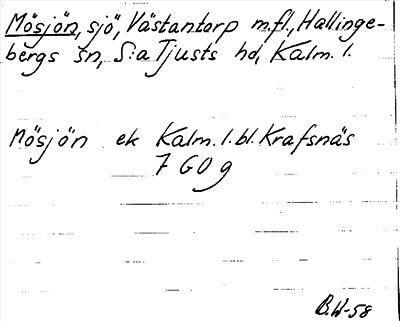 Mösjön, sjö, Västantorp m.fl., Hallinge-
bergs sn, S:a Tjusts hd, Kalm. l.
Mösjön ek Kalm. l. bl. Krafsnäs
7 G 0 g
B.W-58